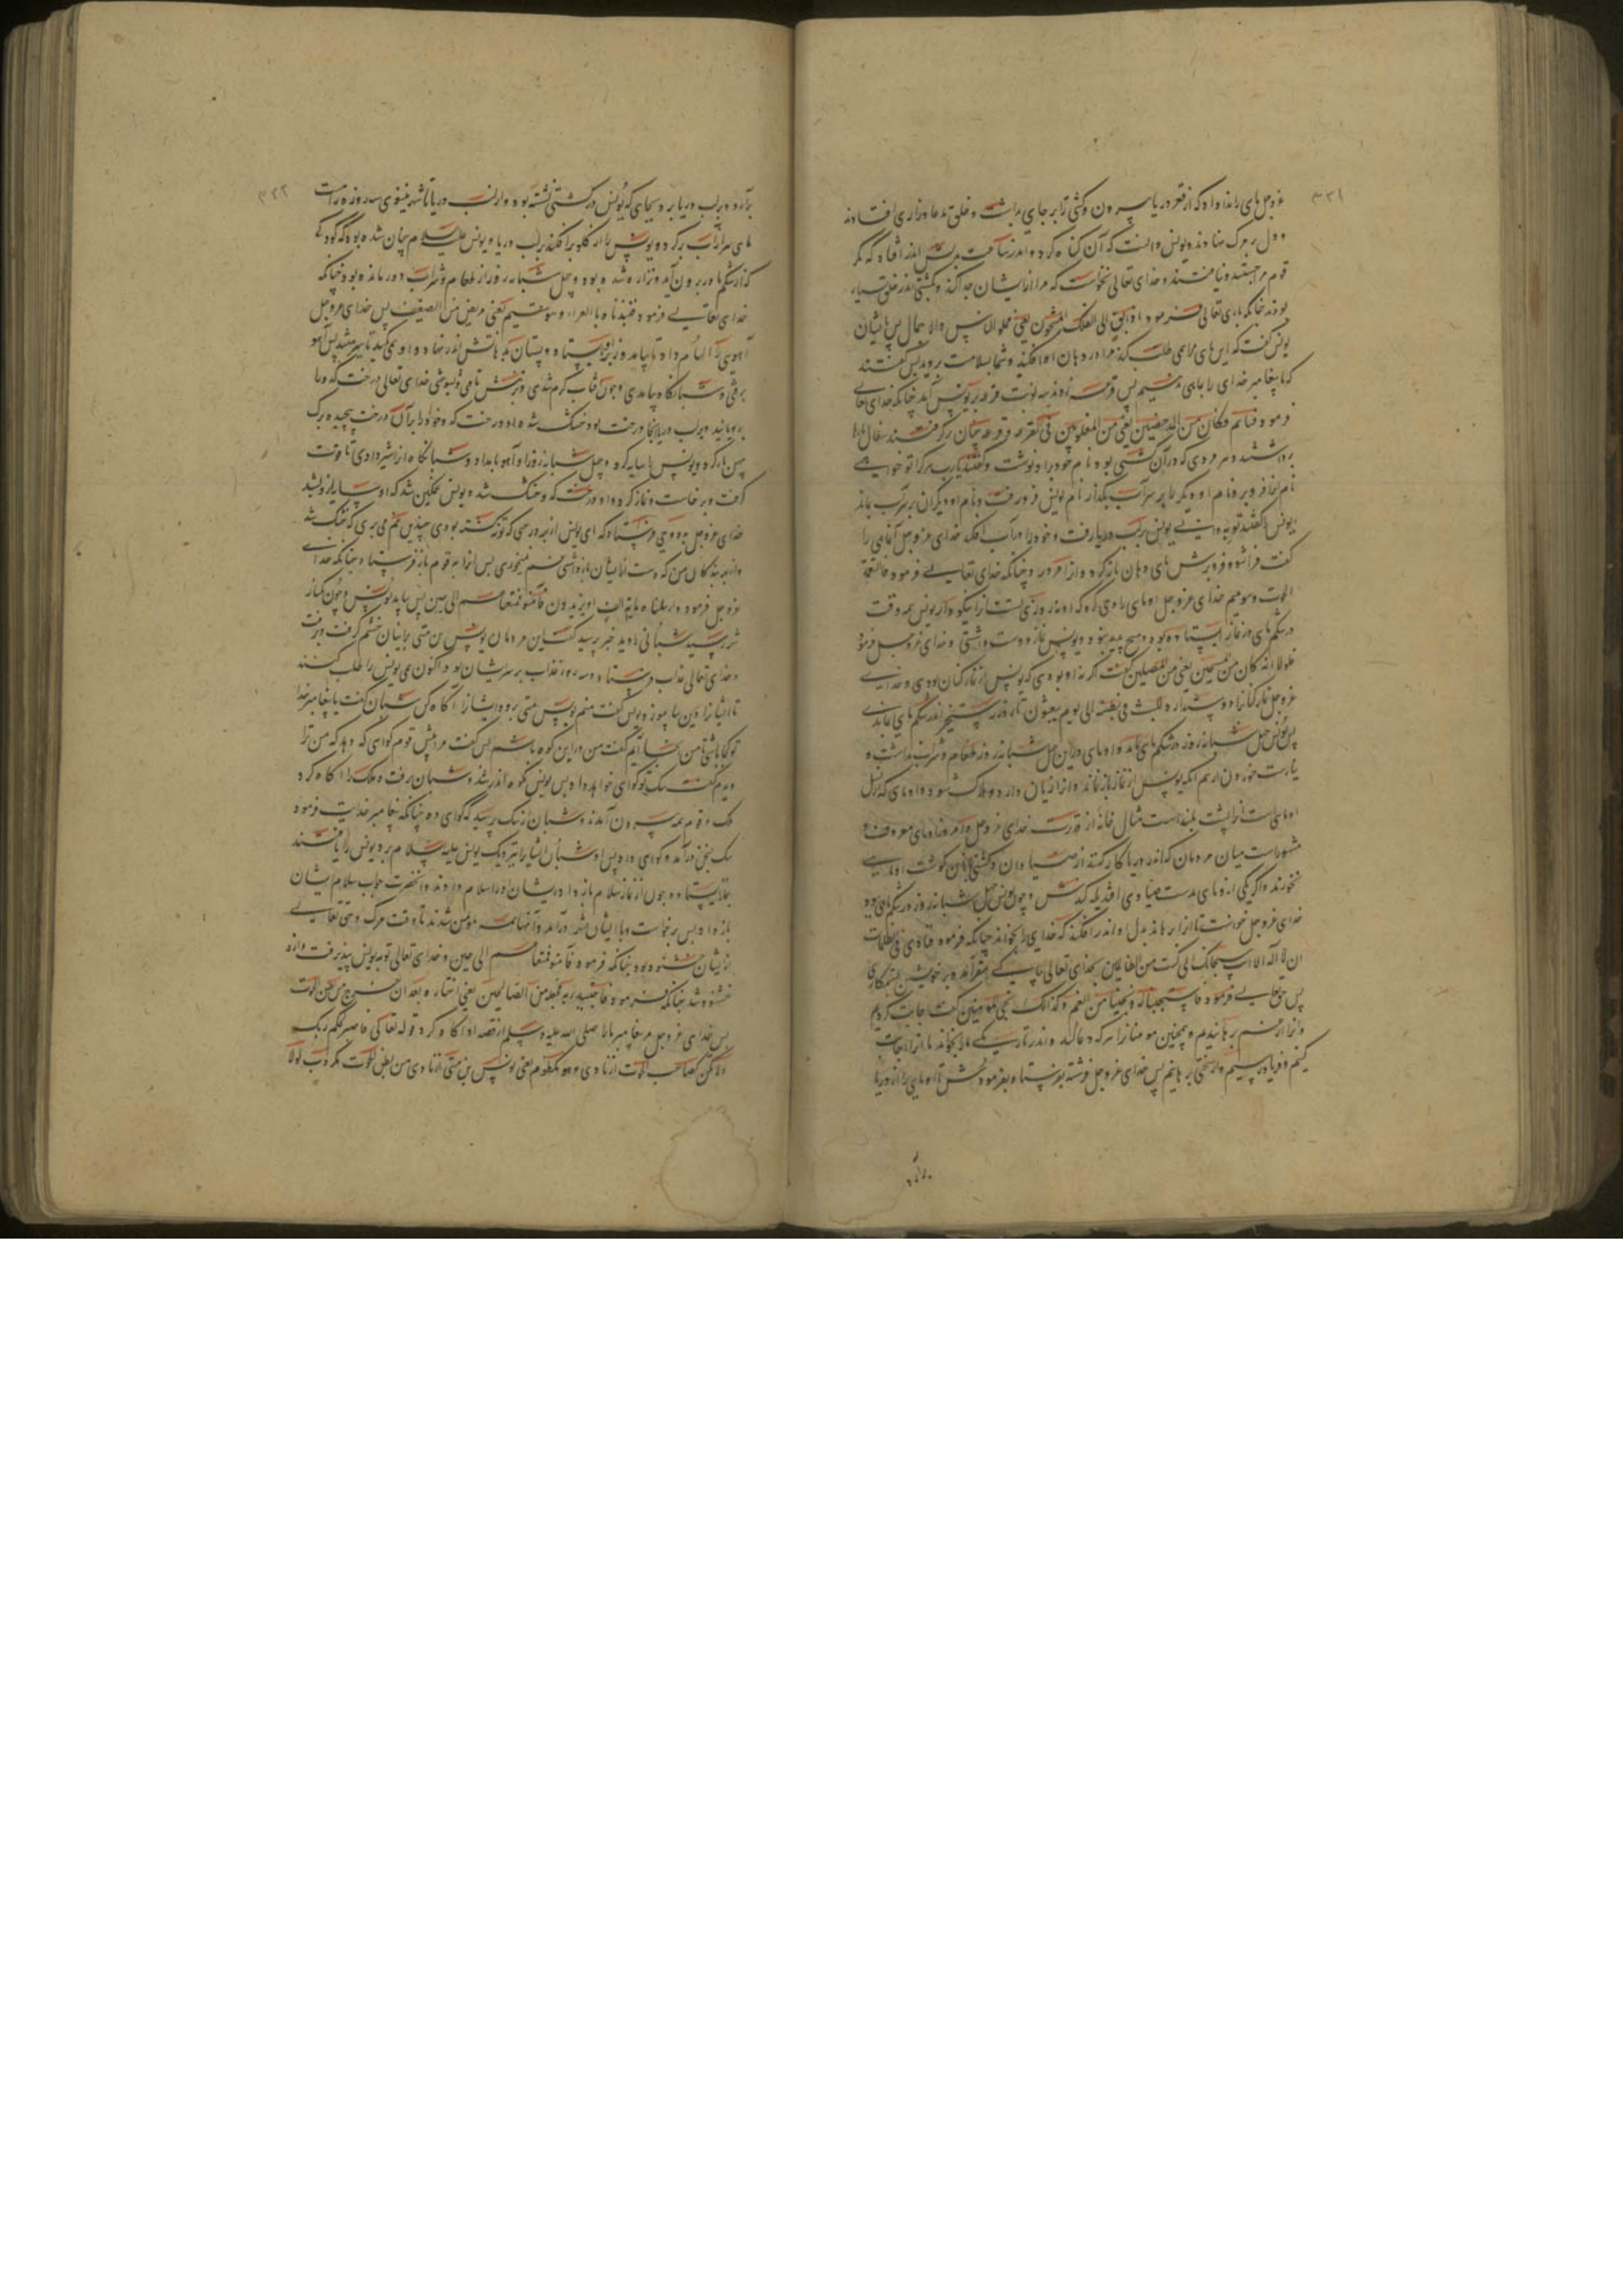 ۳۲۱
عزوجل ماهی را ندا داد که از قعر دریا بیرون و کشتی را بر جای بداشت و خلق بدعا و زاری افتادند
و دل بر مرگ نهادند و یونس دانست که آن گناه کرد و اندر ساعت اندر افتاد که مگر
قوم مرا جستند و نیافتند و خدای تعالی نخواست که مرا از ایشان جدا کند و بکشتی اندر خلق بسیار
بودند چنانکه باری تعالی فرمود اذ ابق الی الفلک المشحون یعنی مملو الناس والاحمال پس ایشان
یونس گفت که این ماهی مرا همی طلب کند مرا در دهان او افکنید و شما بسلامت بروید پس گفتند
که ما پیغامبر خدای را بماهی ندهیم پس قرعه زدند سه نوبت قرعه بر یونس آمد چنانکه خدای تعالی
فرمود فساهم فکان من المدحضین یعنی من المغلوبین فی القرعه و قرعه چنان بر گرفتند سفال
برداشتند و هر مردی که در آن کشتی بود نام خود را نوشت و گفتند یارب هر کرا تو خواهی
نام او فرو بر و نام او دیگر ما بر سر آب بگذار نام یونس فرو رفت و نام او دیگران بر سر آب بماند
یونس را گفتند تو یونس بر لب دریا رفت و خود را در آب افکند خدای عزوجل آن ماهی را
گفت فرا شو و فرو برش ماهی دهان باز کرد و او را فرو برد چنانکه خدای تعالی فرمود فالتقمه
الحوت وهو ملیم خدای عزوجل او ماهی را وحی کرد که او نه روزی تست او را نیکو دار یونس همه وقت
در شکم ماهی در نماز ایستاده بود و تسبیح و یونس نماز دوست داشتی و خدای عزوجل فرمود
فلولا انه کان من المسبحین یعنی من المصلین گفت اگر نه او بودی که یونس از نماز کنان بودی و خدای
عزوجل نماز کنان را دوست دارد للبث فی بطنه الی یوم یبعثون تا روز رستخیز اندر شکم ماهی بماندی
پس یونس چهل شبانه روز در شکم ماهی بماند و او ماهی در این چهل شبانه روز طعام و شراب نداشت و
نیارست خوردن از بیم آنکه یونس از نماز باز نماند و او را زیان دارد و هلاک شود و او ماهی که از نسل
او ماهی است او را پشت بلند است مثال خانه از قدرت خدای عزوجل و امروز او ماهی معروف و
مشهور است میان مردمان که اندر دریا کار کنند از صیادان و کشتی بانان گوشت او ماهی
نخورند و اگر یکی از او ماهی بدست صیادی افتد یله کندش و چون یونس چهل شبانه روز در شکم ماهی بود
خدای عزوجل خواست تا او را برهاند بدل او اندر افکند که خدای را بخواند چنانکه فرمود فنادی فی الظلمات
ان لا اله الا انت سبحانک انی کنت من الظالمین بخدای تعالی بپاکی مقر آمد و بر خویش بستمکاری
پس حق تعالی فرمود فاستجبنا له ونجیناه من الغم وکذلک ننجی المؤمنین گفت اجابت کردیم
و او را از غم برهانیدیم و همچنین مومنان را هر که دعا کند و اندر تاریکی ما را بخواند ما او را اجابت
کنیم و فریاد رسیم و از سختی برهانیم پس خدای عزوجل فرشته بفرستاد و بفرمودش تا او ماهی را از دریا
۳۲۲
برآرد و بر لب دریا برد بجای که یونس در کشتی نشسته بود و از لب دریا تا شهر نینوی سه روزه راهست
ماهی سر از آب بر کرد و یونس را از گلو بر افکند بر لب دریا و یونس علیه السلام چنان شده بود که کودکی
که از شکم مادر برون آید و نزار شده بود و چهل شبانه روز از طعام و شراب دور مانده بود چنانکه
خدای تعالی فرمود فنبذناه بالعراء وهو سقیم یعنی مریض من الضعیف پس خدای عزوجل
آهویی را الهام داد تا بیامد و زبر او بایستاد و پستان بدهانش اندر نهاد و او همی مکید تا سیر شد پس آهو
برفتی و شبانگاه بیامدی و چون آفتاب گرم شدی و خدای تعالی درخت کدو را
برویانید و بر لب دریا آنجا درخت بود خشک شده او درخت کدو خود را بر آن درخت پیچید و برگ
پهن باز کرد و یونس را سایه کرد و چهل شبانه روز او آهو بامداد و شبانگاه او را شیر دادی تا قوت
گرفت و برخاست و نماز کرد و او درخت کدو خشک شد و یونس غمگین شد که او سایه ازو بشد
خدای عزوجل بدو وحی فرستاد که ای یونس از بهر درختی که تو نکشته بودی چندین غم می بری که خشک شد
و از بهر بندگان من که دست از ایشان بازداشتی غم نمیخوری پس او را به قوم باز فرستاد چنانکه خدای
عزوجل فرمود وارسلناه الی مایة الف او یزیدون فآمنوا فمتعناهم الی حین پس بیامد یونس و چون بکنار
شهر رسید شبانی را دید خبر پرسید گفت این مردمان یونس بن متی بر ایشان خشم گرفت و برفت
و خدای تعالی عذاب فرستاد و سه روز عذاب بر سر ایشان بود و اکنون همی یونس را طلب کنند
تا ایشان را دین بیاموزد یونس گفت منم یونس متی برو و ایشان را آگاه کن شبان گفت یا پیغامبر خدا
تو کجا باشی تا من اینجا آیم گفت من در این کوه باشم پس گفت مرا پیش قوم گواهی که دهد که من ترا
دیدم گفت سگ تو گواهی خواهد داد پس یونس بکوه اندر شد و شبان رفت و ملک را آگاه کرد
ملک و قوم همه بیرون آمدند و شبان از سگ پرسید که گواهی ده چنانکه پیغامبر خدایت فرمود
سگ بسخن درآمد و گواهی داد پس او شبان ایشان را بنزدیک یونس علیه السلام برد یونس را یافتند
بنماز ایستاده و چون از نماز سلام باز داد ایشان او را سلام دادند و آنحضرت جواب سلام ایشان
باز داد پس برخاست و با ایشان بشهر درآمد و آنها همه مؤمن شدند تا وقت مرگ و حق تعالی
از ایشان خشنود بود چنانکه فرمود فآمنوا فمتعناهم الی حین و خدای تعالی توبه یونس بپذیرفت و ازو
خشنود شد چنانکه فرمود فاجتبیه ربه فجعله من الصالحین یعنی اختاره بعد ان خرج من بطن الحوت
پس خدای عزوجل مر پیغامبر ما را صلی الله علیه وسلم از قصه او آگاه کرد قوله تعالی فاصبر لحکم ربک
ولا تکن کصاحب الحوت اذ نادی وهو مکظوم یعنی یونس بن متی اذ نادی من بطن الحوت مکروب لولا